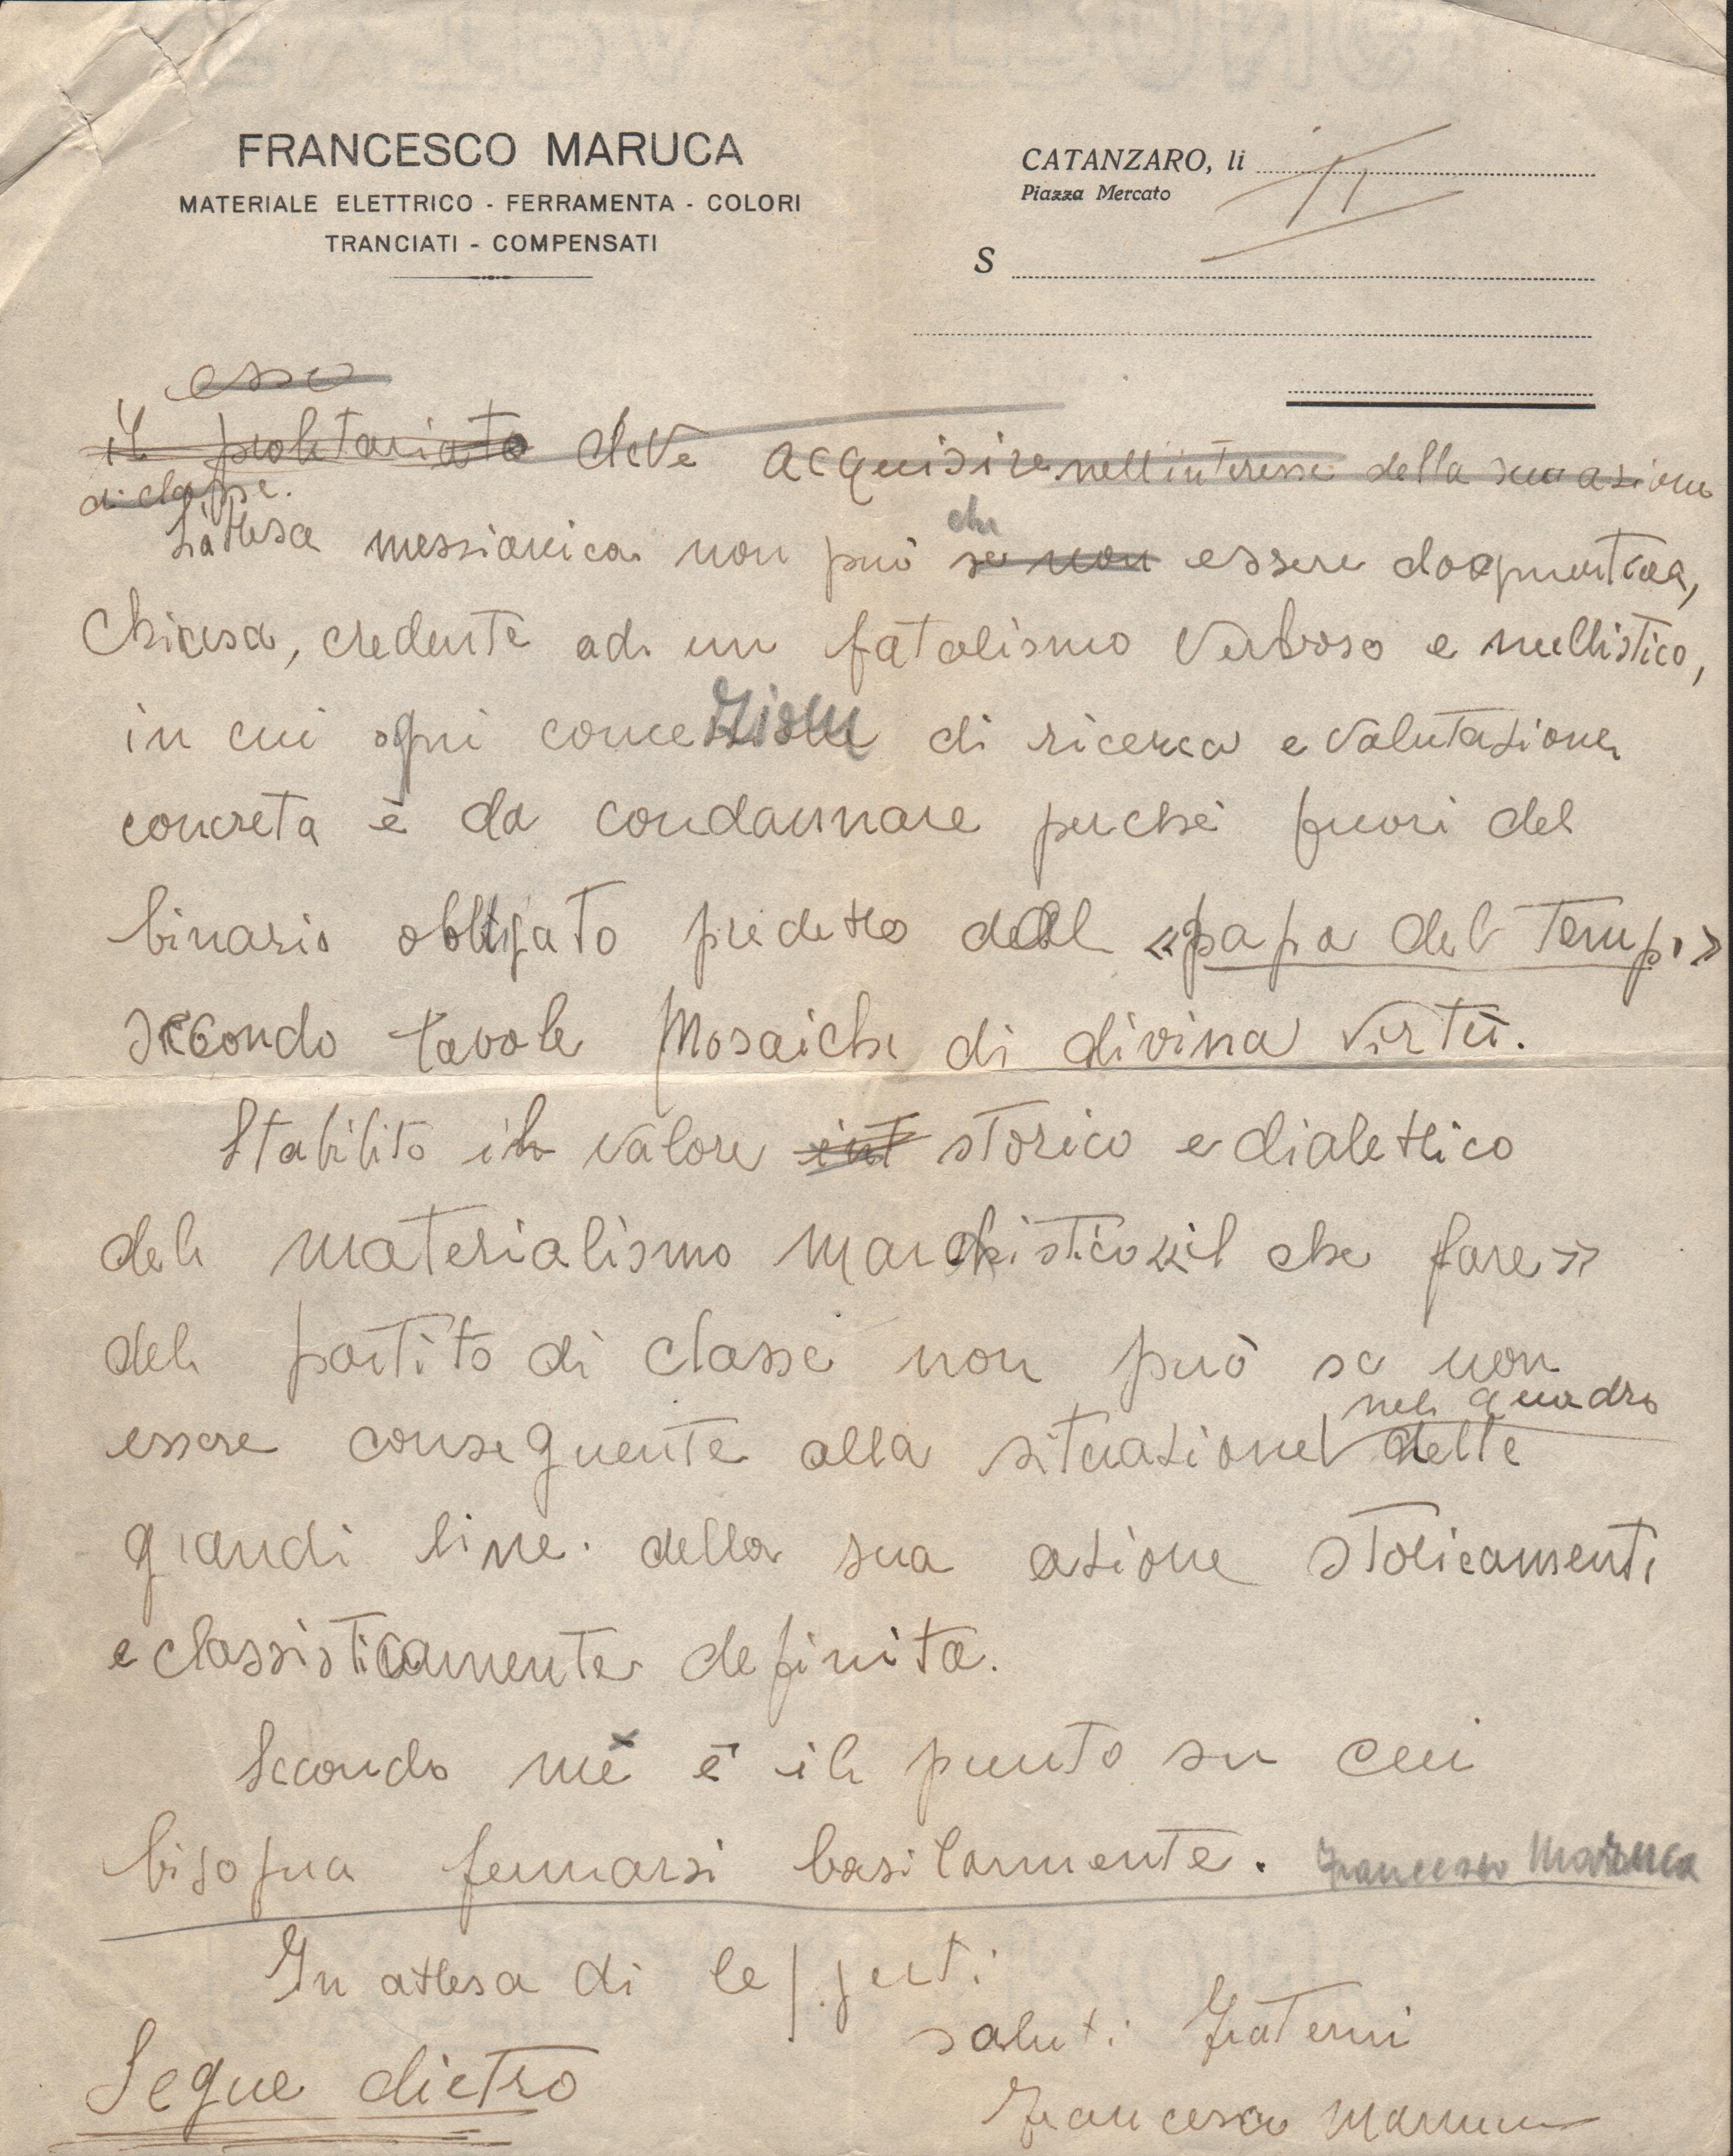 FRANCESCO MARUCA
MATERIALE ELETTRICO - FERRAMENTA - COLORI
TRANCIATI - COMPENSATI
CATANZARO, li
Piazza Mercato
S
esso
il proletariato deve acquisire nell'interesse della sua azione
di classe.
L'attesa messianica non può se non che essere dogmatica,
Chiesa, credente ad un fatalismo verboso e nullistico,
in cui ogni concezione di ricerca e valutazione
concreta è da condannare perché fuori del
binario obbligato predetto dal «papa del tempo»
secondo tavole Mosaiche di divina virtù.
Stabilito il valore int storico e dialettico
del materialismo marchistico «il che fare»
del partito di classe non può se non
essere conseguente alla situazione nel quadro delle
grandi linee della sua azione storicamente
e classisticamente definita.
Secondo me è il punto su cui
bisogna fermarsi basilarmente. Francesco Maruca
In attesa di leggerti
saluti fraterni
Segue dietro
Francesco Maruca